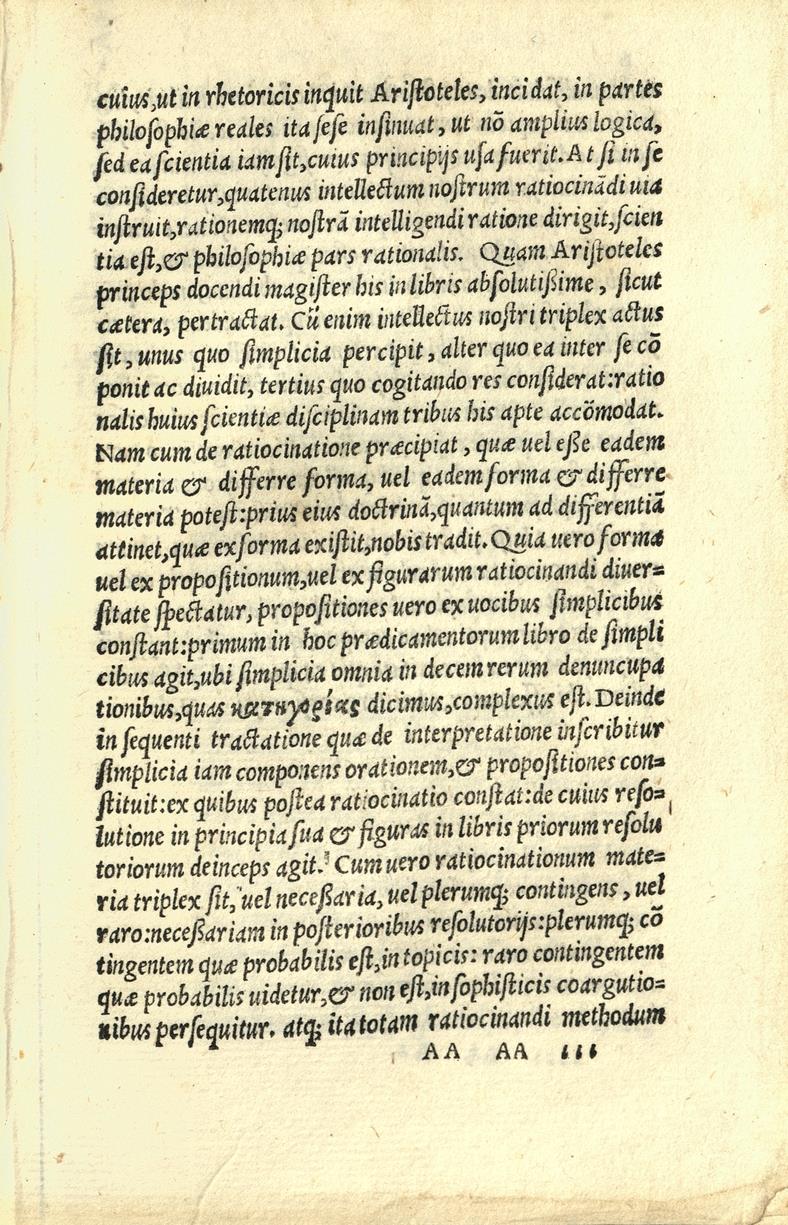 cuius,ut in rhetoricis inquit Aristoteles, incidat, in partes
philosophiæ reales ita sese insinuat, ut nõ amplius logica,
sed ea scientia iam sit,cuius principijs usa fuerit. At si in se
consideretur,quatenus intellectum nostrum ratiocinãdi uia
instruit,rationemq́; nostrã intelligendi ratione dirigit,scien
tia est,& philosophiæ pars rationalis. Quam Aristoteles
princeps docendi magister his in libris absolutißime, sicut
cætera, pertractat. Cũ enim intellectus nostri triplex actus
sit, unus quo simplicia percipit, alter quo ea inter se cõ
ponit ac diuidit, tertius quo cogitando res considerat:ratio
nalis huius scientiæ disciplinam tribus his apte accõmodat.
Nam cum de ratiocinatione præcipiat, quæ uel eße eadem
materia & differre forma, uel eadem forma & differre
materia potest:prius eius doctrinã,quantum ad differentiã
attinet,quæ ex forma existit,nobis tradit. Quia uero forma
uel ex propositionum,uel ex figurarum ratiocinandi diuer=
sitate spectatur, propositiones uero ex uocibus simplicibus
constant:primum in hoc prædicamentorum libro de simpli
cibus agit,ubi simplicia omnia in decem rerum denuncupa
tionibus,quas κατηγορίας dicimus,complexus est. Deinde
in sequenti tractatione quæ de interpretatione inscribitur
simplicia iam componens orationem,& propositiones con=
stituit:ex quibus postea ratiocinatio constat:de cuius reso=
lutione in principia sua & figuras in libris priorum resolu
toriorum deinceps agit. Cum uero ratiocinationum mate=
ria triplex sit, uel neceßaria, uel plerumq́; contingens, uel
raro:neceßariam in posterioribus resolutorijs:plerumq́; cõ
tingentem quæ probabilis est,in topicis: raro contingentem
quæ probabilis uidetur,& non est,in sophisticis coargutio=
nibus persequitur. atq́; ita totam ratiocinandi methodum
AA AA iii